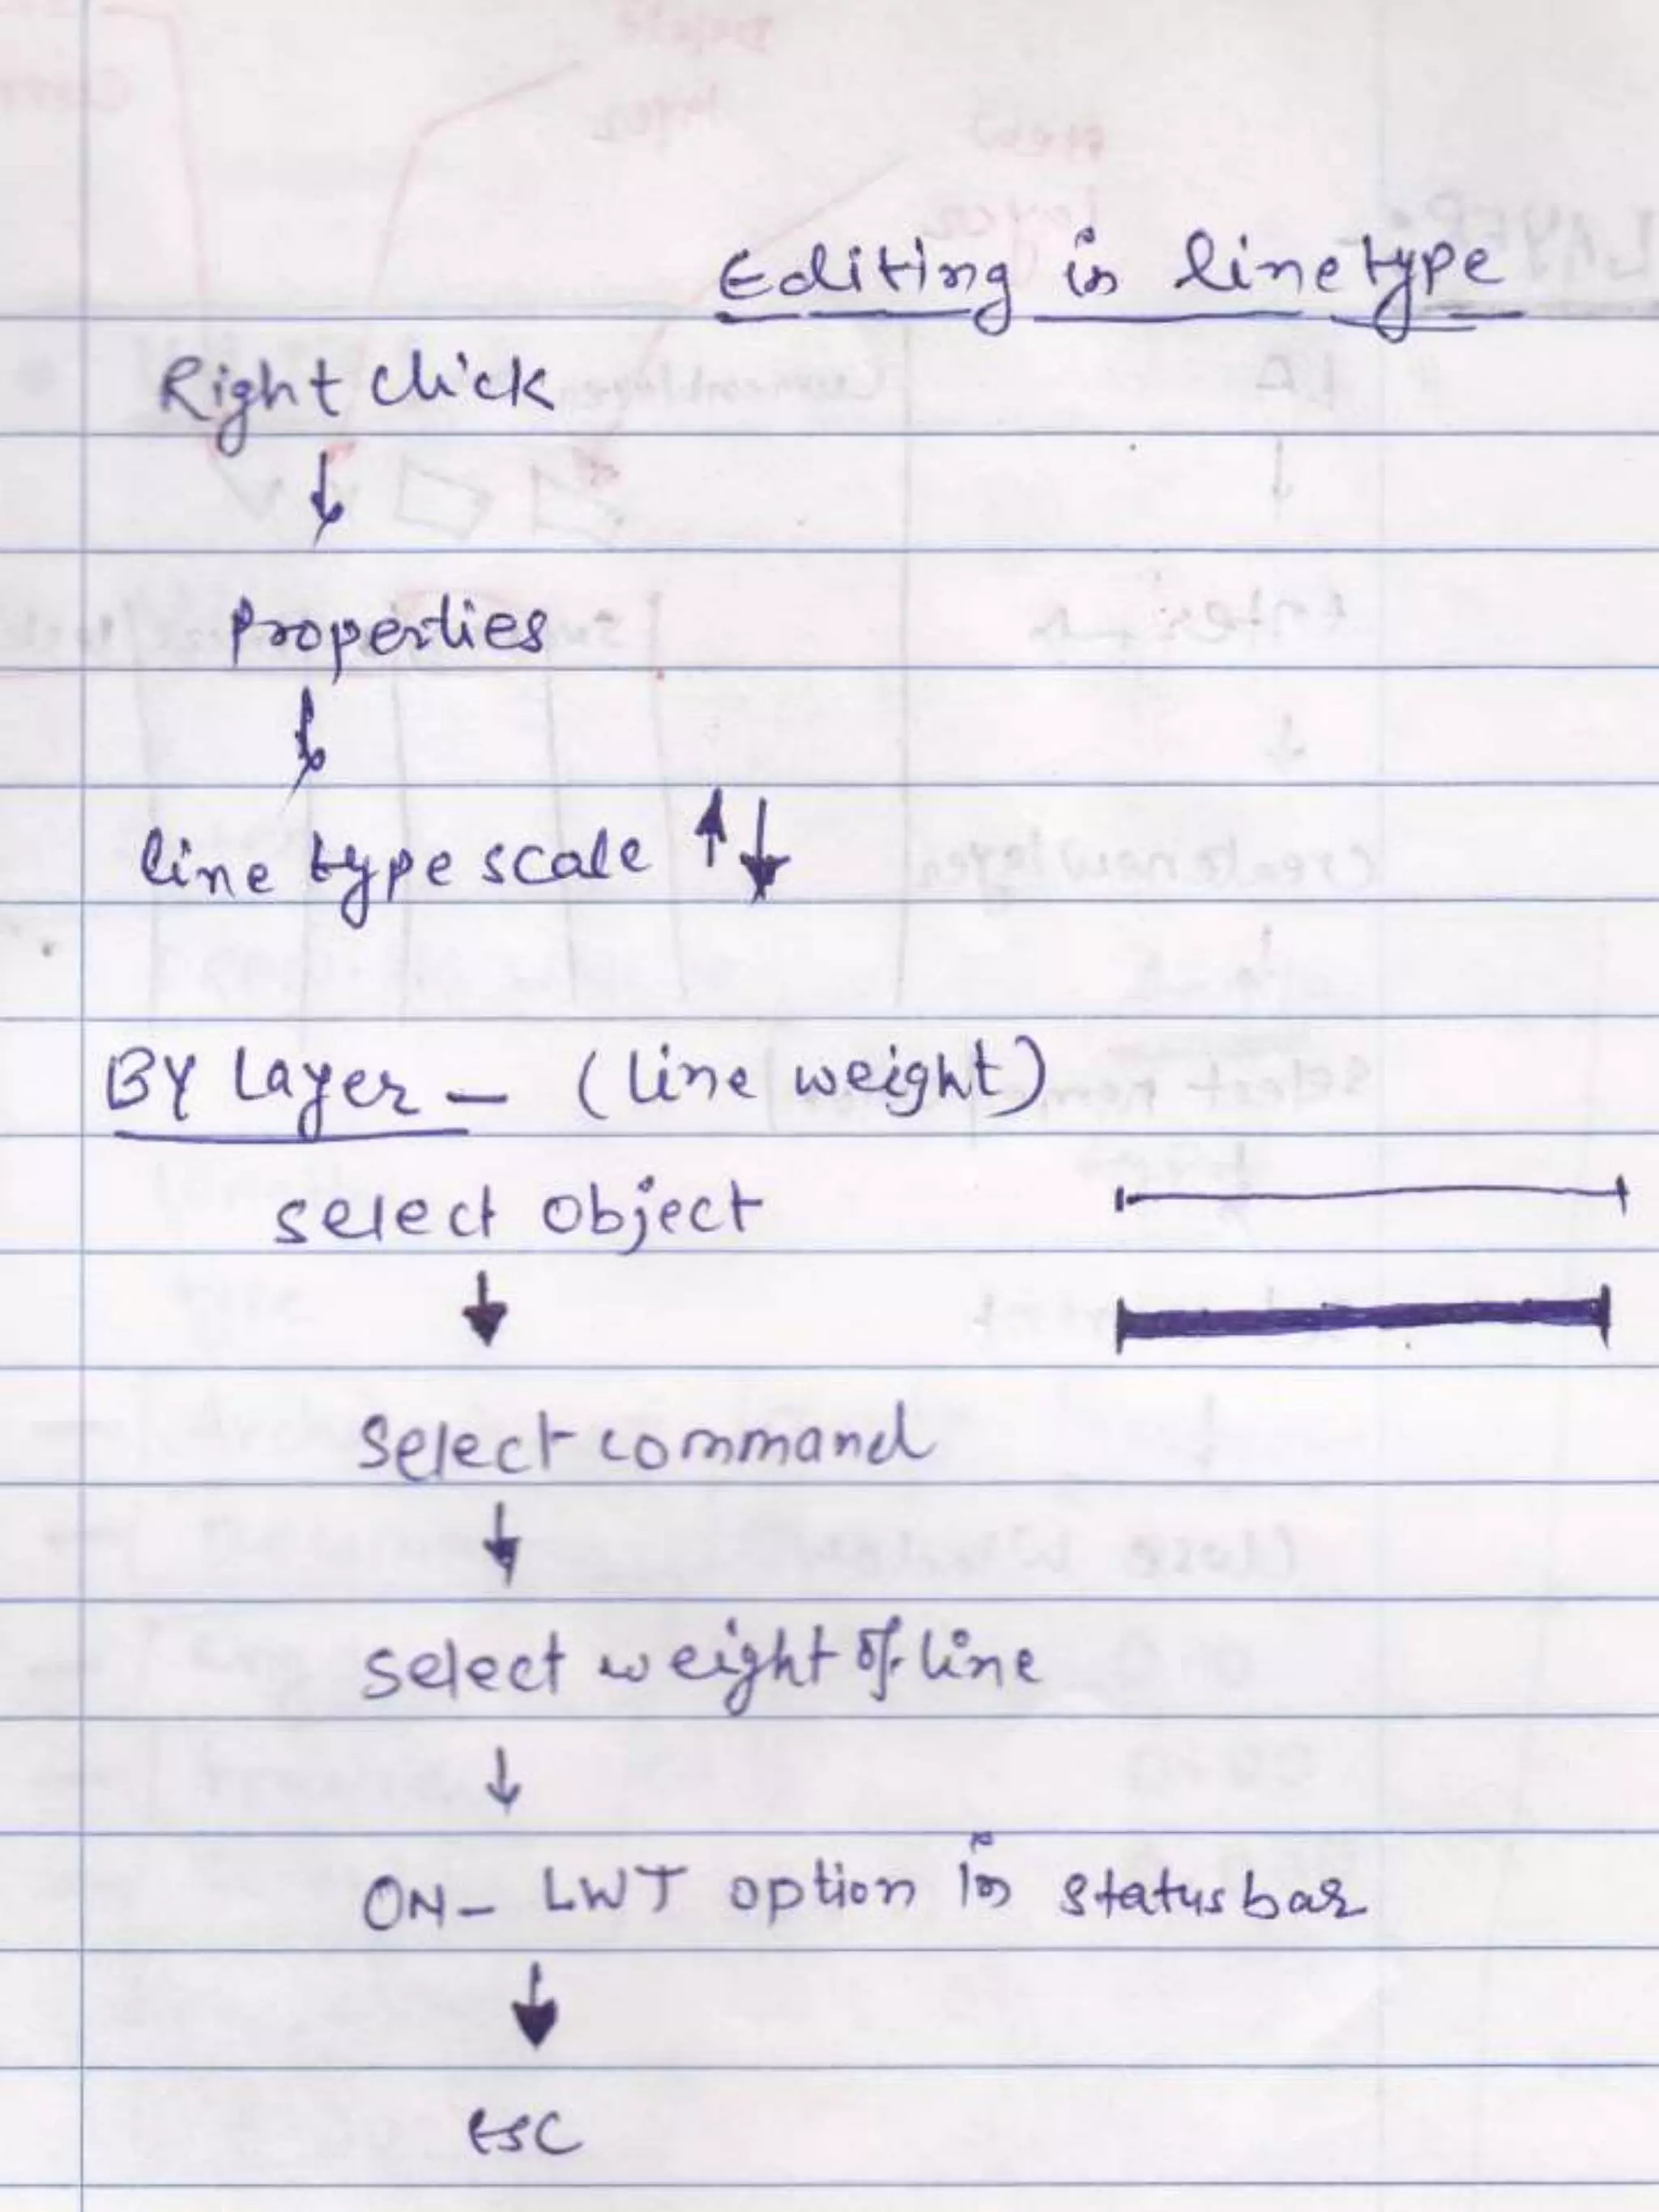 Editing in linetype
Right click
↓
Properties
↓
line type scale ↑↓
BY Layer - (line weight)
select object
↓
Select command
↓
Select weight of line
↓
ON- LWT option in status bar
↓
esc